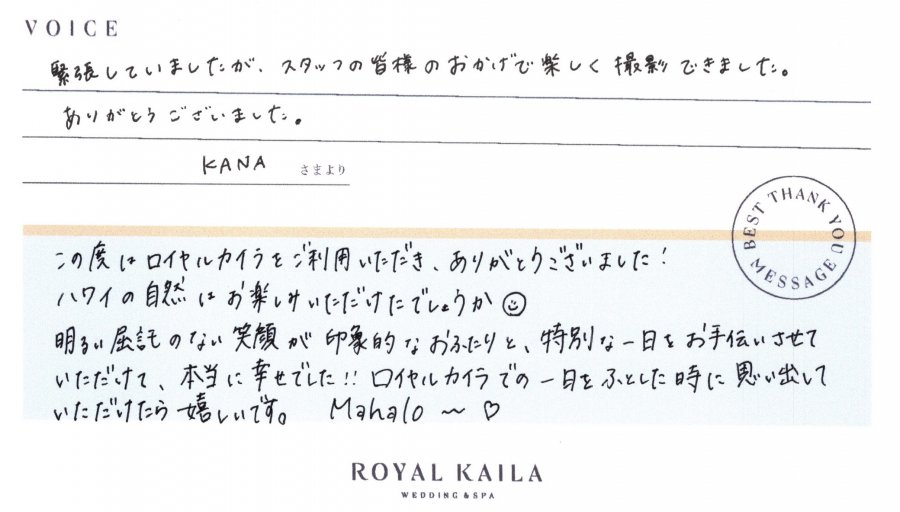 VOICE
緊張していましたが、スタッフの皆様のおかげで楽しく撮影できました。
ありがとうございました。
KANA さまより
BEST THANK YOU MESSAGE
この度はロイヤルカイラをご利用いただき、ありがとうございました!
ハワイの自然はお楽しみいただけたでしょうか☺
明るい屈託のない笑顔が印象的なおふたりと、特別な一日をお手伝いさせて
いただけて、本当に幸せでした!! ロイヤルカイラでの一日をふとした時に思い出して
いただけたら嬉しいです。 Mahalo 〜 ♡
ROYAL KAILA
WEDDING & SPA